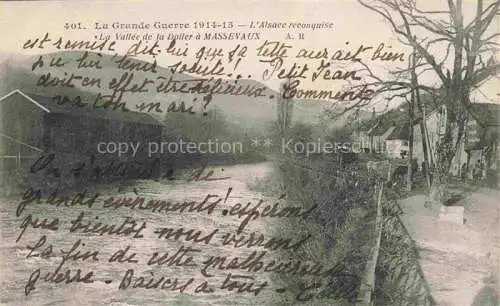 401. La Grande Guerre 1914-15 — L'Alsace reconquise
La Vallée de la Doller à MASSEVAUX A. R
est remise dit-lui que sa tette aurait bien
pu lui leur Petit Jean
doit en effet être délicieux. Comment
va ton mari?
copyright Shutterstock copyright Shutterstock
On s'attend à de
grands évènements! espérons
que bientôt nous verrons
la fin de cette malheureuse
guerre - Baisers à tous -